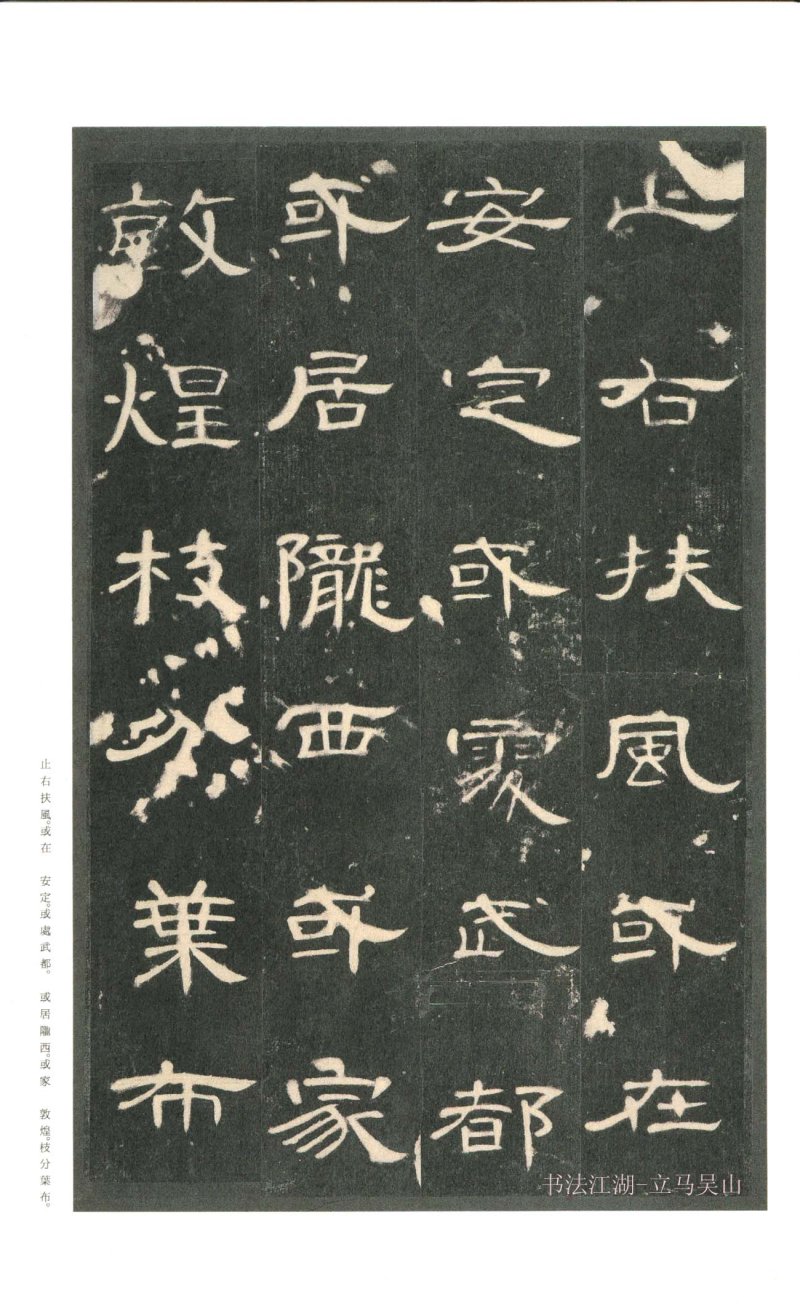 止右扶風或在
安定或處武都
或居隴西或家
敦煌枝分葉布
止右扶風。或在　安定。或處武都。　或居隴西。或家　敦煌。枝分葉布。
书法江湖-立马吴山